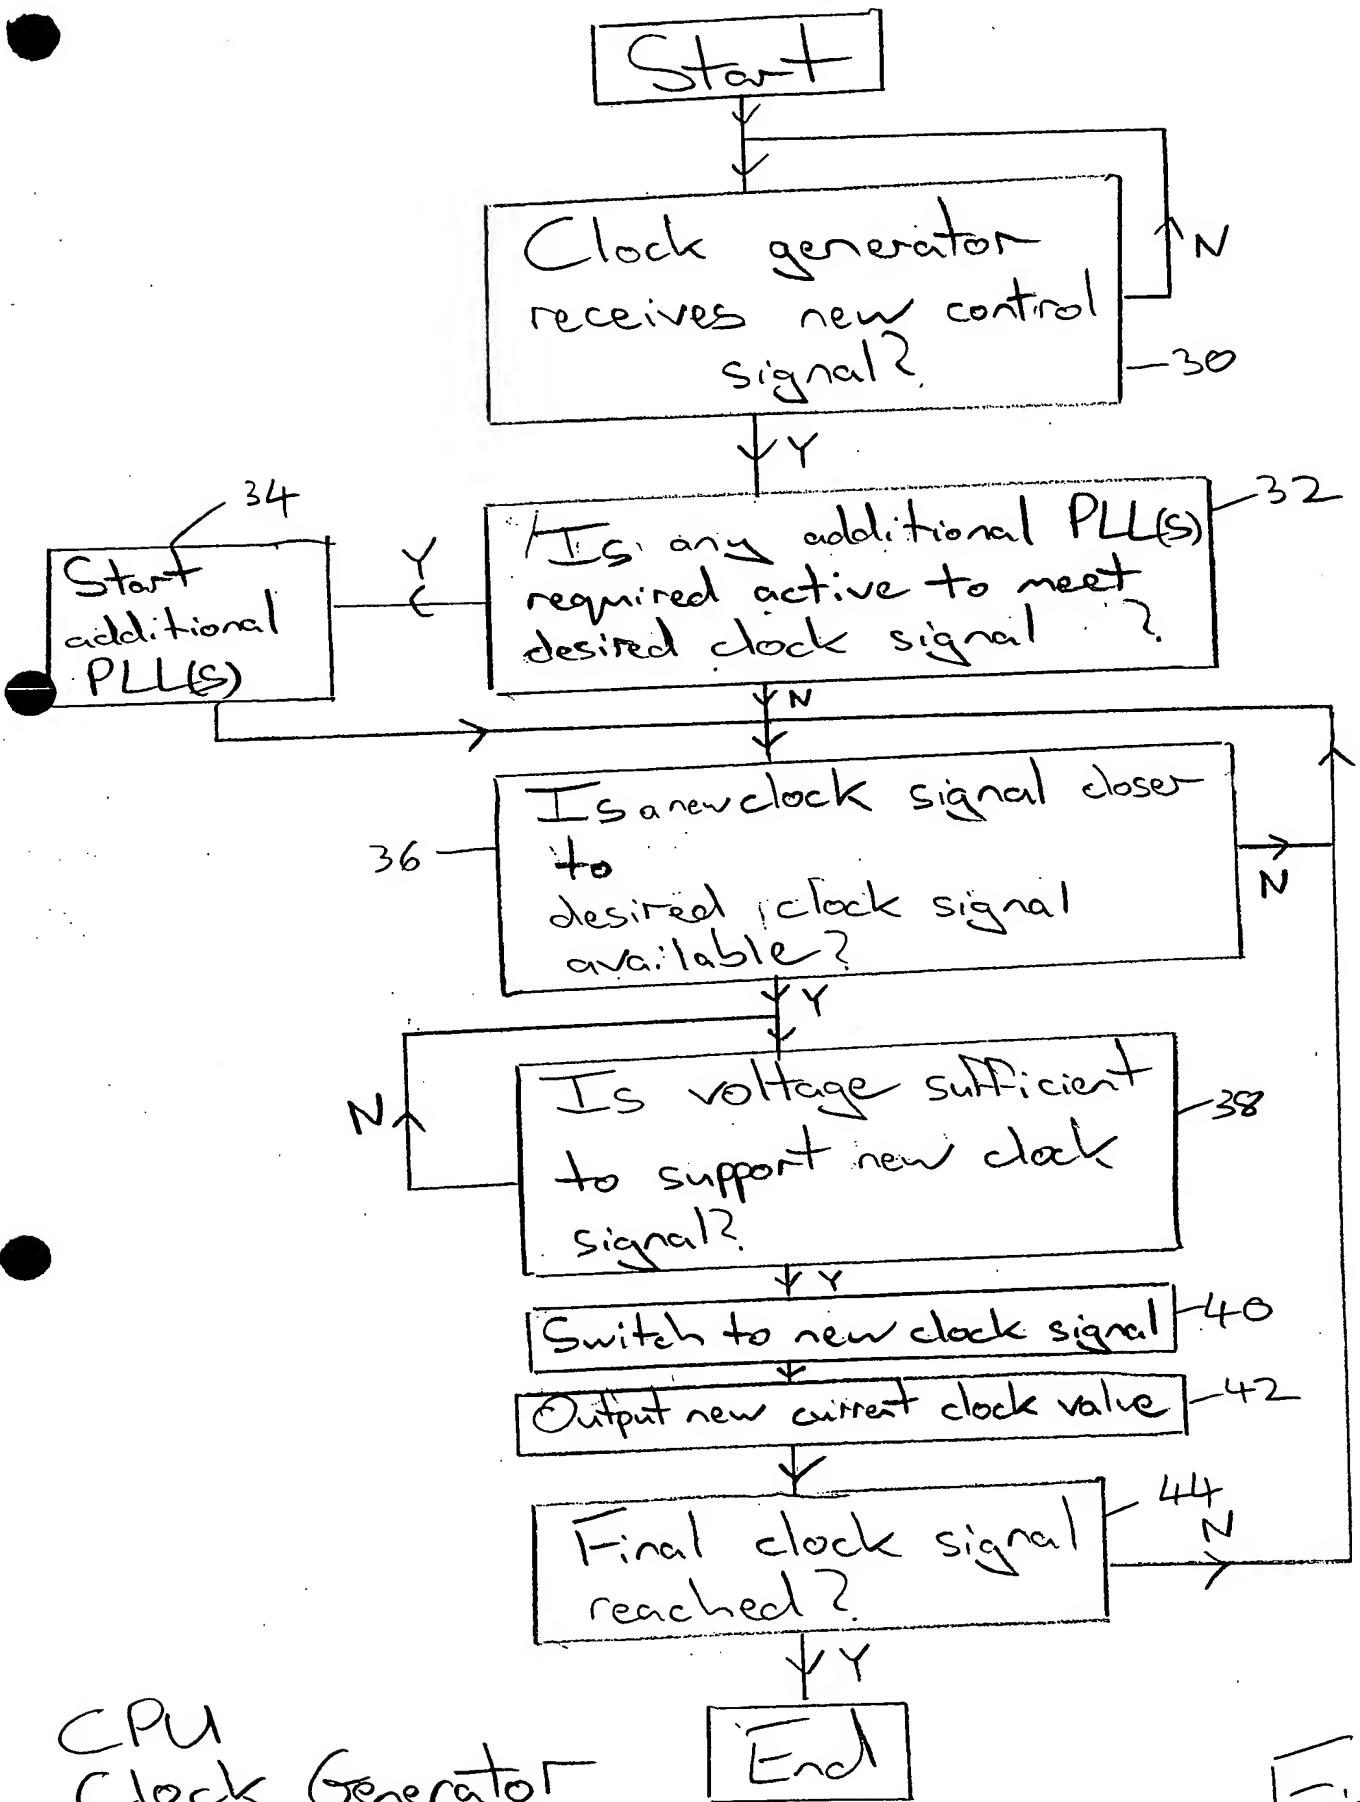 Start
N
Clock generator
receives new control
signal?
30
Y
34
32
Is any additional PLL(s)
required active to meet
desired clock signal ?
Y
Start
additional
PLL(s)
N
Is a new clock signal closer
to
desired clock signal
available?
36
N
Y
Is voltage sufficient
to support new clock
signal?
38
N
Y
Switch to new clock signal
40
Output new current clock value
42
Final clock signal
reached?
44
N
Y
End
CPU
Clock Generator